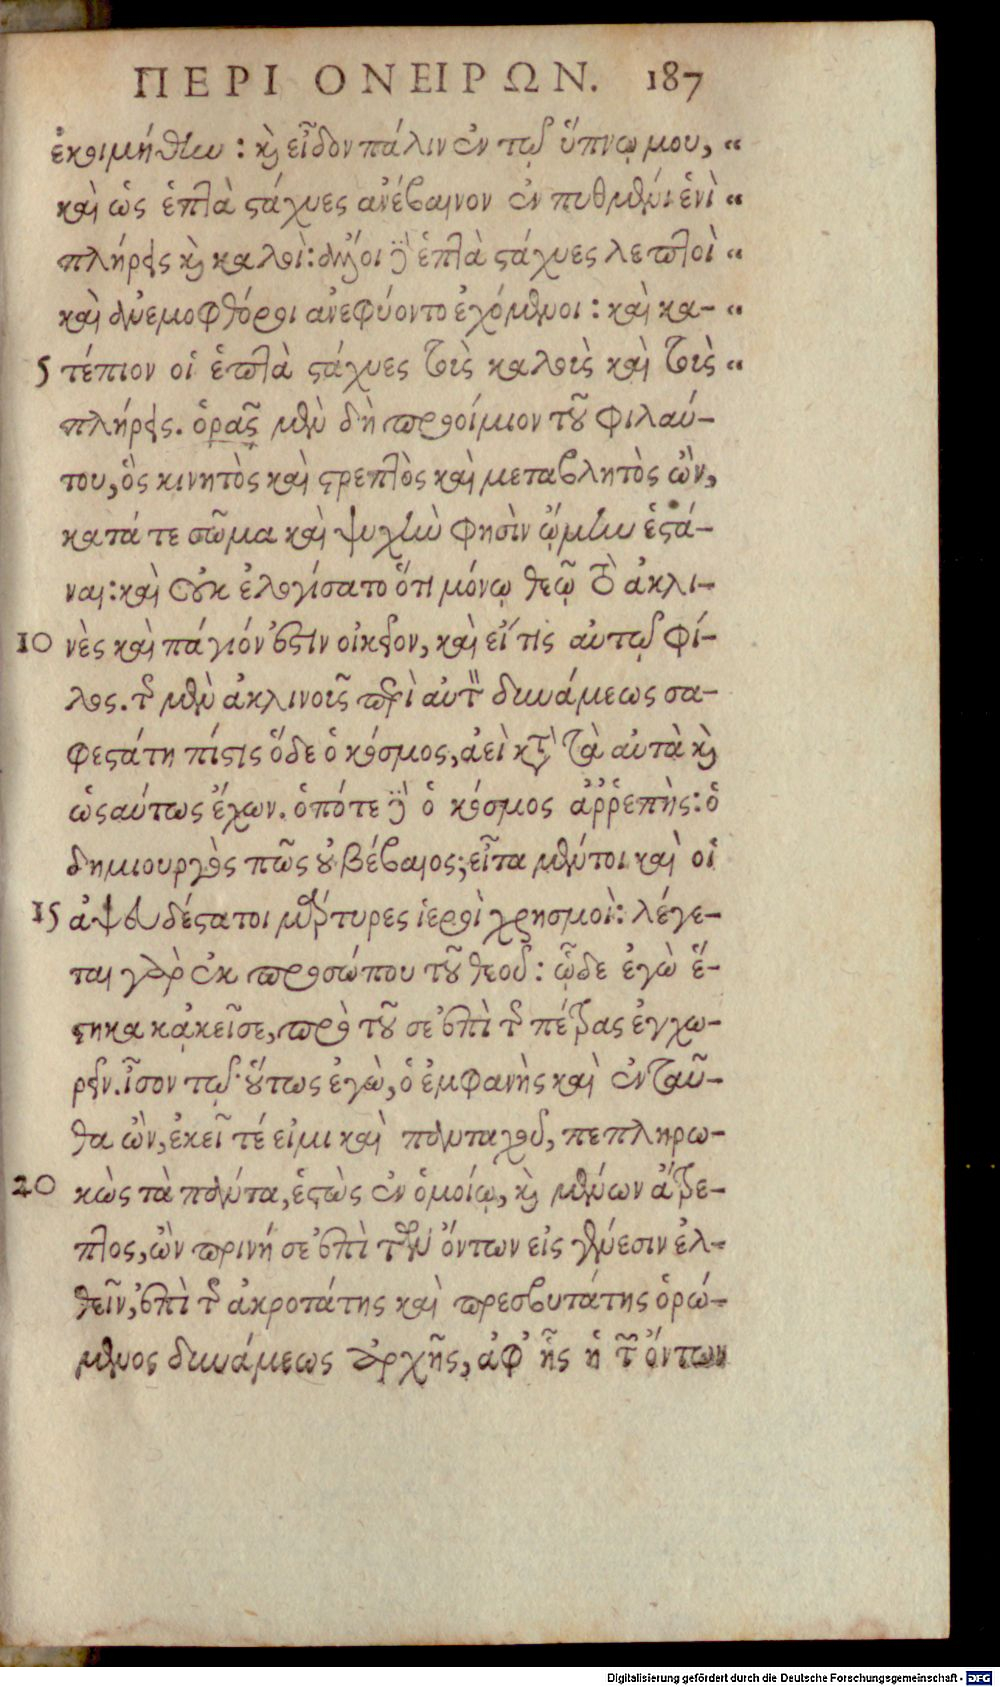 ΠΕΡΙ ΟΝΕΙΡΩΝ. 187
ἐκοιμήθην: καὶ εἶδον πάλιν ἐν τῷ ὕπνῳ μου, “
καὶ ὡς ἑπτὰ στάχυες ἀνέβαινον ἐν πυθμένι ἑνὶ “
πλήρεις καὶ καλοὶ: ἄλλοι δὲ ἑπτὰ στάχυες λεπτοὶ “
καὶ ἀνεμοφθόροι ἀνεφύοντο ἐχόμενοι: καὶ κα- “
5 τέπιον οἱ ἑπτὰ στάχυες τοὺς καλοὺς καὶ τοὺς “
πλήρεις. ὁρᾷς μὲν δὴ προοίμιον τοῦ φιλαύ-
του, ὃς κινητὸς καὶ στρεπτὸς καὶ μεταβλητὸς ὢν,
κατά τε σῶμα καὶ ψυχὴν φησὶν ᾤμην ἑστά-
ναι: καὶ οὐκ ἐλογίσατο ὅτι μόνῳ θεῷ τὸ ἀκλι-
10 νὲς καὶ πάγιόν ἐστιν οἰκεῖον, καὶ εἴ τις αὐτῷ φί-
λος. τῆς μὲν ἀκλινοῦς περὶ αὐτὸν δυνάμεως σα-
φεστάτη πίστις ὅδε ὁ κόσμος, ἀεὶ κατὰ τὰ αὐτὰ καὶ
ὡσαύτως ἔχων. ὁπότε δὲ ὁ κόσμος ἀῤῥεπὴς: ὁ
δημιουργὸς πῶς οὐ βέβαιος; εἶτα μέντοι καὶ οἱ
15 ἀψευδέστατοι μάρτυρες ἱεροὶ χρησμοὶ: λέγε-
ται γὰρ ἐκ προσώπου τοῦ θεοῦ: ὧδε ἐγὼ ἕ-
στηκα κἀκεῖσε, πρὸ τοῦ σε ἐπὶ τῆς πέτρας ἐγχω-
ρεῖν. ἶσον τῷ· οὕτως ἐγὼ, ὁ ἐμφανὴς καὶ ἐνταῦ-
θα ὢν, ἐκεῖ τέ εἰμι καὶ πανταχοῦ, πεπληρω-
20 κὼς τὰ πάντα, ἑστὼς ἐν ὁμοίῳ, καὶ μένων ἄτρε-
πτος, ὢν πρινή σε ἐπὶ τῶν ὄντων εἰς γένεσιν ἐλ-
θεῖν, ἐπὶ τῆς ἀκροτάτης καὶ πρεσβυτάτης ὁρώ-
μενος δυνάμεως ἀρχῆς, ἀφ᾽ ἧς ἡ τῶν ὄντων
Digitalisierung gefördert durch die Deutsche Forschungsgemeinschaft - DFG